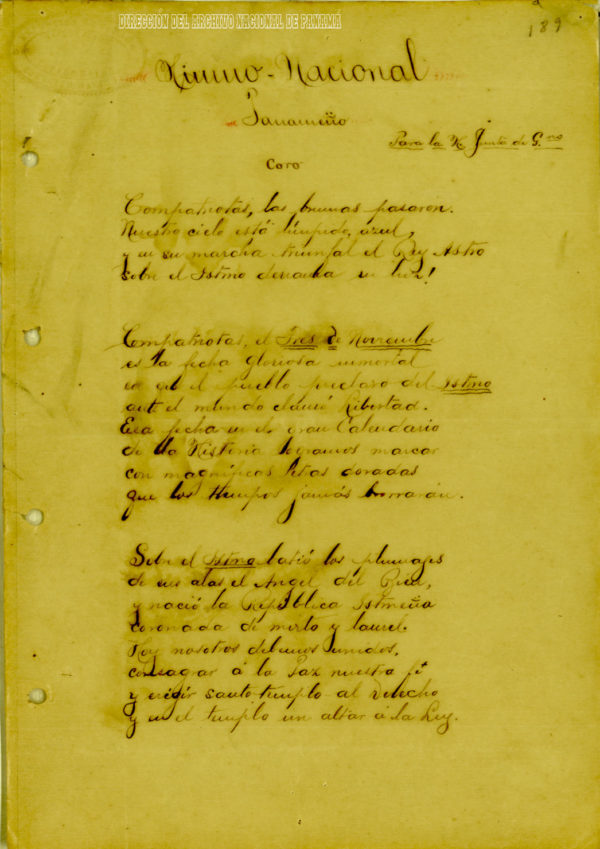 DIRECCIÓN DEL ARCHIVO NACIONAL DE PANAMA
189
Himno-Nacional
Panameño
Para la H. Junta de G.no
Coro
Compatriotas, las brumas pasaron.
Nuestro cielo está límpido, azul,
y en su marcha triunfal el Rey Astro
sobre el Istmo derrama su luz!
Compatriotas, el Tres de Noviembre
es la fecha gloriosa inmortal
en que el pueblo preclaro del Istmo
ante el mundo clamó Libertad.
Esa fecha en el gran Calendario
de la Historia logramos marcar
con magníficas letras doradas
que los tiempos jamás borrarán.
Sobre el Istmo batió los plumajes
de sus alas el Angel del Bien,
y nació la República Istmeña
coronada de mirto y laurel.
Hoy nosotros debemos unidos,
consagrar á la Paz nuestra fé
y erigir santo templo al Derecho
y en el templo un altar á la Ley.